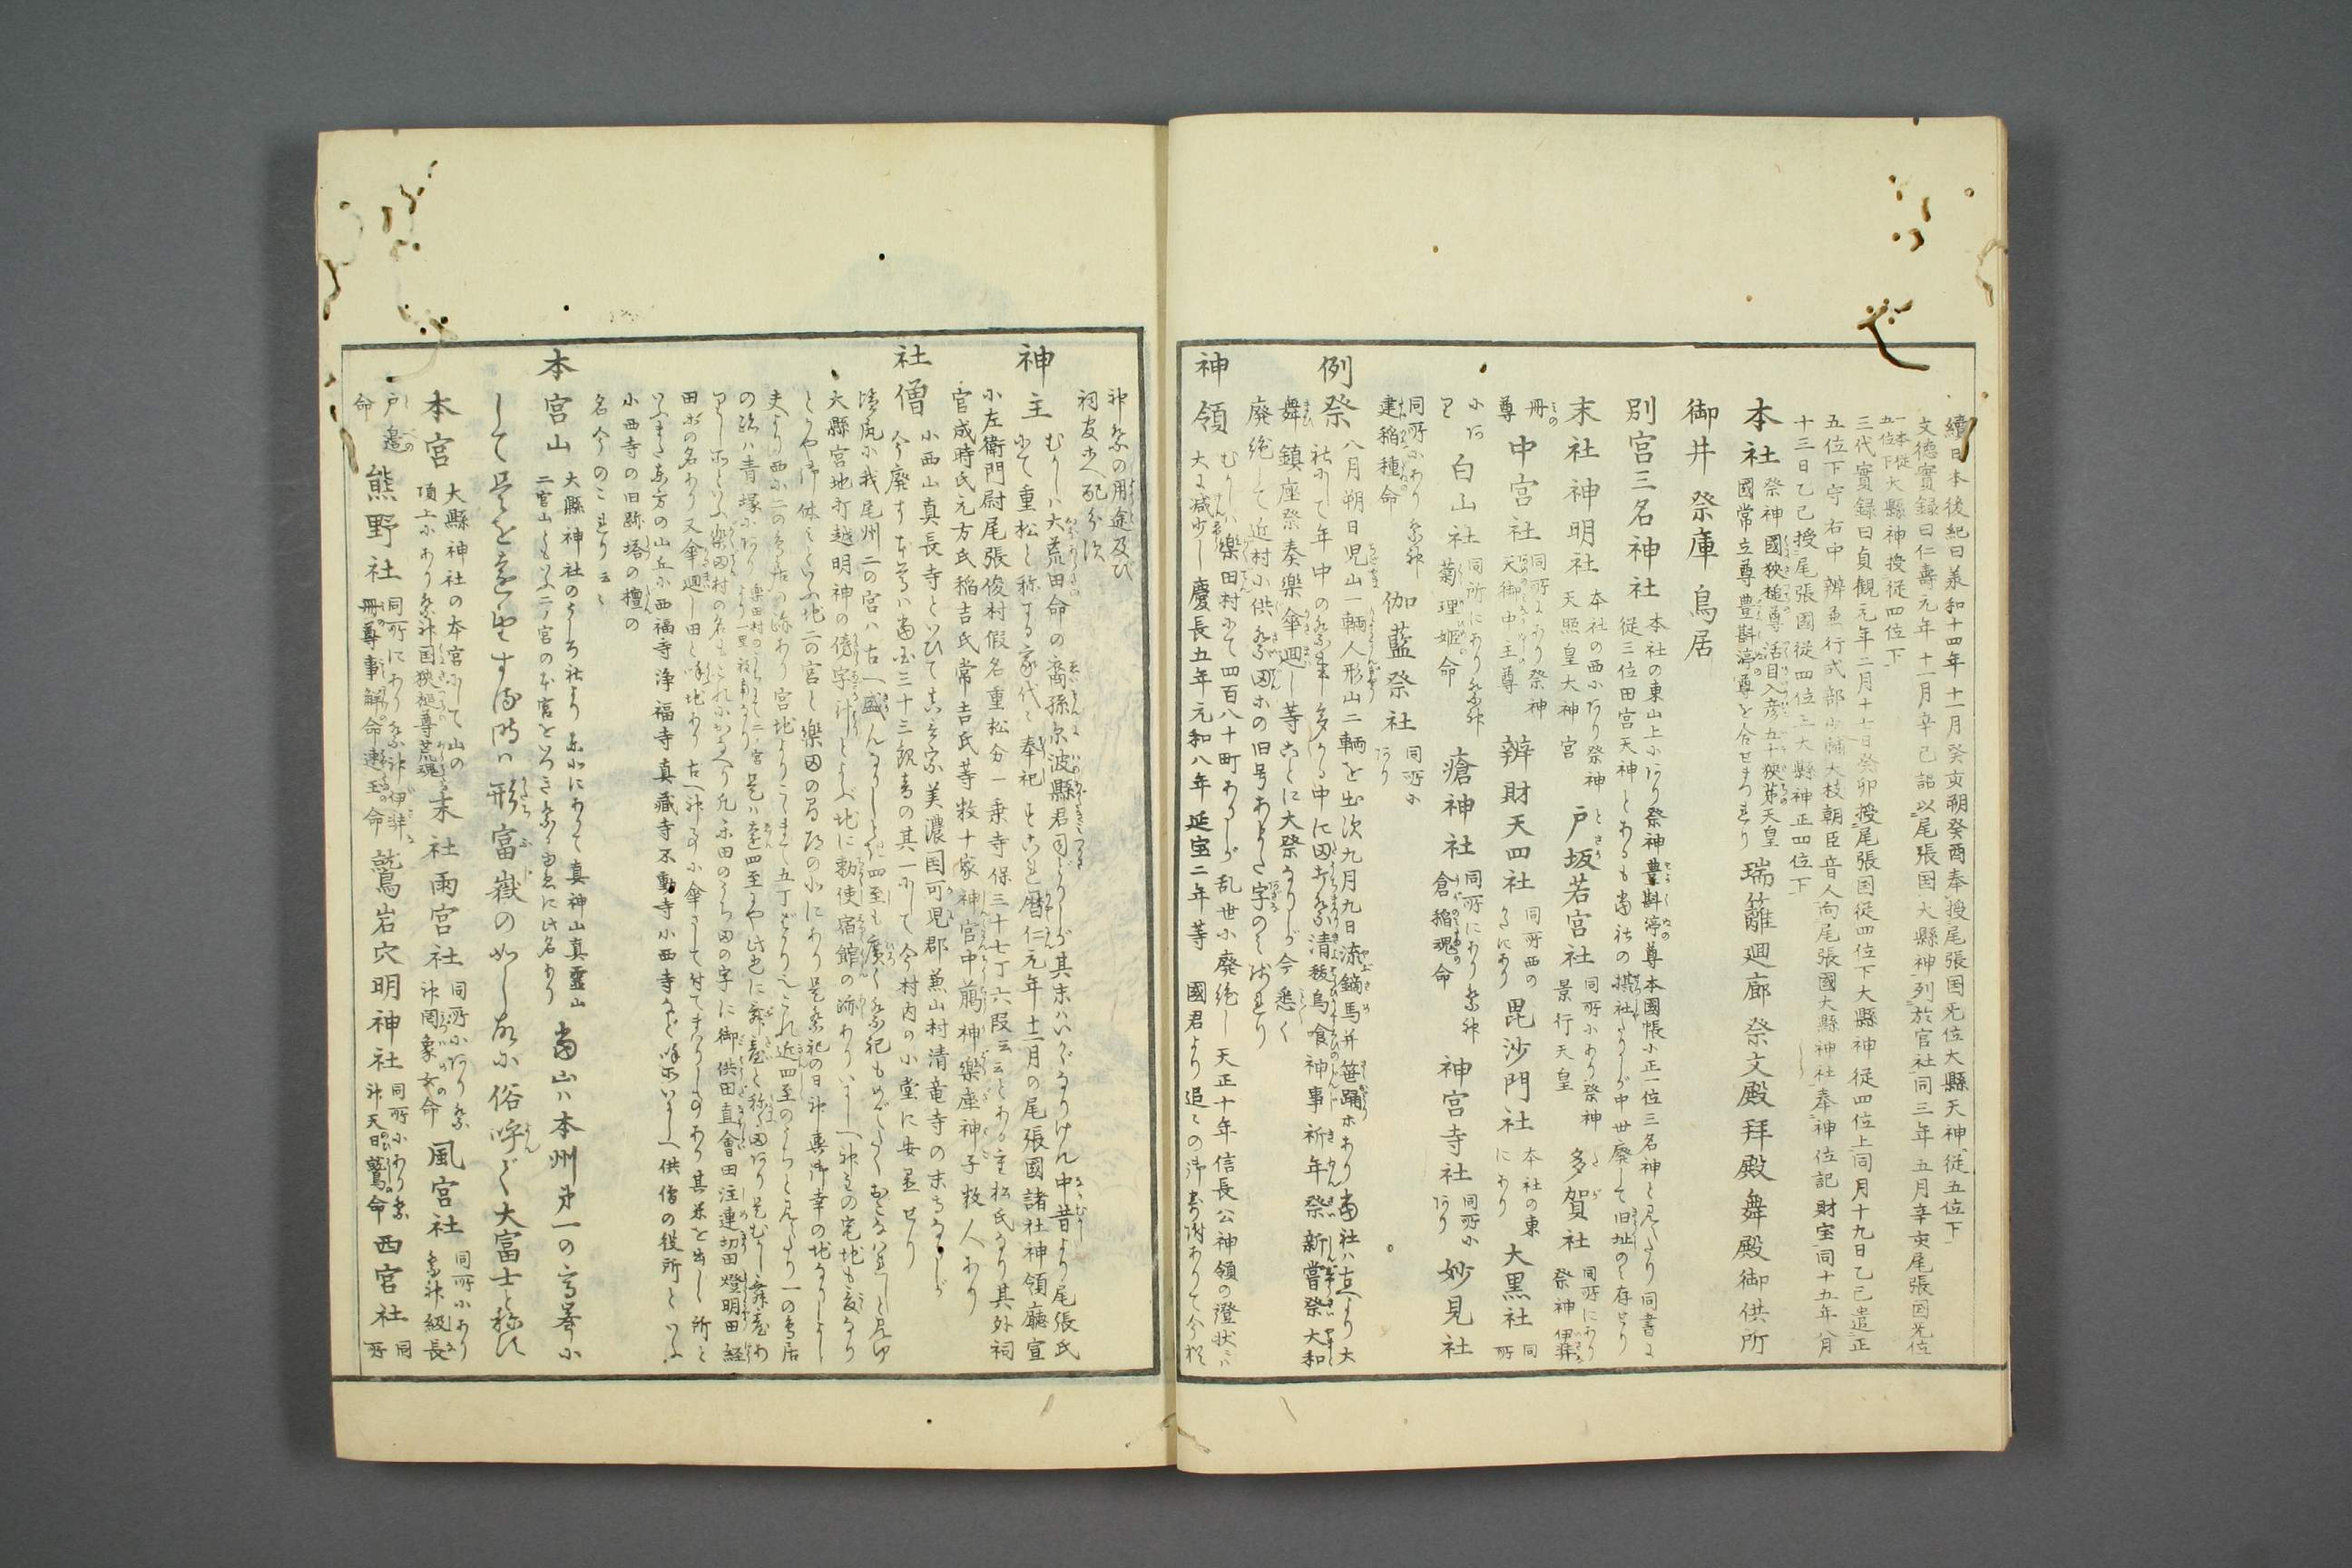 續日本後紀曰兼和十四年十一月癸亥朔癸酉奉授尾張国无位大縣天神從五位下
文德實録曰仁壽元年十一月辛己詔以尾張国大縣神列於官社同三年五月辛亥尾張国无位
一本從五位下大縣神授從四位下
三代實録曰貞観元年二月十七日癸卯授尾張国從四位下大縣神從四位上同月十九日乙已遣正
五位下守右中辨兼行式部少輔大枝朝臣音人向尾張國大縣神社奉神位記財宝同十五年八月
十三日乙已授尾張國從四位上大縣神正四位下
本社 祭神國狹槌尊活目入彦五十狹茅天皇 國常立尊豊斟渟尊を合せまつれり 瑞籬廻廊祭文殿拜殿舞殿御供所
御井祭庫鳥居
別宮三名神社 本社の東山上にあり祭神豊斟渟尊本國帳小正一位三名神と見えたり同書に 從三位田宮天神とあるも當社の攝社なりしが中世廢して旧址のミ存せり
末社神明社 本社の西小あり祭神 天照皇大神宮 戸坂若宮社 同所小あり祭神 景行天皇 多賀社 同所にあり 祭神伊弉
冊尊 中宮社 同所にあり祭神 天御中主尊 辨財天四社 同所西の かたにあり 毘沙門社 本社の東 にあり 大黒社 同所
小あり 白山社 同所にあり祭神 菊理姫命 瘡神社 同所にあり祭神 倉稲魂命 神宮寺社 同所小 あり 妙見社
同所小あり祭神 建稲種命 伽藍祭社 同所小 あり
例祭 八月朔日児山一輌人形山二輌を出次九月九日流鏑馬并笹踊ホあり當社ハ古へより大
社にして年中の祭事多かる中に田打祭清秡烏喰神事祈年祭新嘗祭大和
舞鎮座祭奏樂傘廻し等ことに大祭なりしが今悉く
廃絶して近村小供祭田ホの旧号あまた字のミ残れり
神領 むかしハ樂田村にて四百八十町ありしが乱世小廃絶し天正十年信長公神領の澄状にハ
大に減少し慶長五年元和八年延宝二年等 國君より追々の御寄附ありて今猶
神祭の用途及び
祠官に配分次
神主 むかしハ大荒田命の裔孫尓波縣君司どりしが其末ハいかゞなりけん中昔より尾張氏
にて重松と称する家代々奉祀せられ暦仁元年十二月の尾張國諸社神領廳宣
小左衛門尉尾張俊村假名重松分一乗寺保三十七丁六段云云とある重松氏なり其外祠
官成時氏元方氏稲吉氏常吉氏等数十家神官中﨟神樂座神子数人あり
社僧 小西山真長寺といひて真言宗美濃国可児郡兼山村清竜寺の末寺なりしが
今廃す本尊ハ當国三十三観音の其一にして今村内の小堂に安置せり
清風小我尾州二の宮ハ古へ盛んなりしとき四至も廣く祭祀もめでたくおこなハれしと見ゆ
大縣宮地打越明神の傍字汁とよぶ地に勅使宿館の跡ありいにしへ神主の宅地も爰なり
とかや御休ミといふ地二の宮と樂田の間路の小にあり是祭祀の日神輿御幸の地なりしよし
夫より西小二の鳥居の跡あり宮地よりこゝまで五丁どかりこれ近四至のうちと見えたり一の鳥居
の跡ハ青塚小あり 樂田村のうちにて二ノ宮 より一里許南なり 是ハ遠四至にや此邑に舞臺と称る田あり是むかし舞臺あ
りし所といふ樂田村の名もこれにおこれり凡本田のうち田の字に御供田直會田注連切田燈明田経
田ホの名あり又傘廻し田と呼地あり古へ神事小傘さして舞てまゐりしものあり其米を出し所と
いふまた東方の山丘小西福寺浄福寺真藏寺不動寺小西寺など呼所いにしへ供僧の役所といふ
小西寺の旧跡塔の檀の
名今のこれり云々
本宮山 大縣神社のうしろ社より東小にありて真神山真靈山 二宮山ともいふ二ノ宮の本宮をいつき祭るゆゑに此名あり 當山ハ本州第一の高峯小
して是を遠望する時ハ形富嶽の如し故小俗呼んで大富士と称す
本宮 大縣神社の本宮にして山の 頂上小あり祭神国狹槌尊荒魂 末社雨宮社 同所小あり祭 神罔象女命 風宮社 同所小あり 祭神級長
戸邉命 熊野社 同所にあり祭神伊弉 冊尊事解命速玉命 鷲岩穴明神社 同所小あり祭 神天日鷲命 西宮社 同所